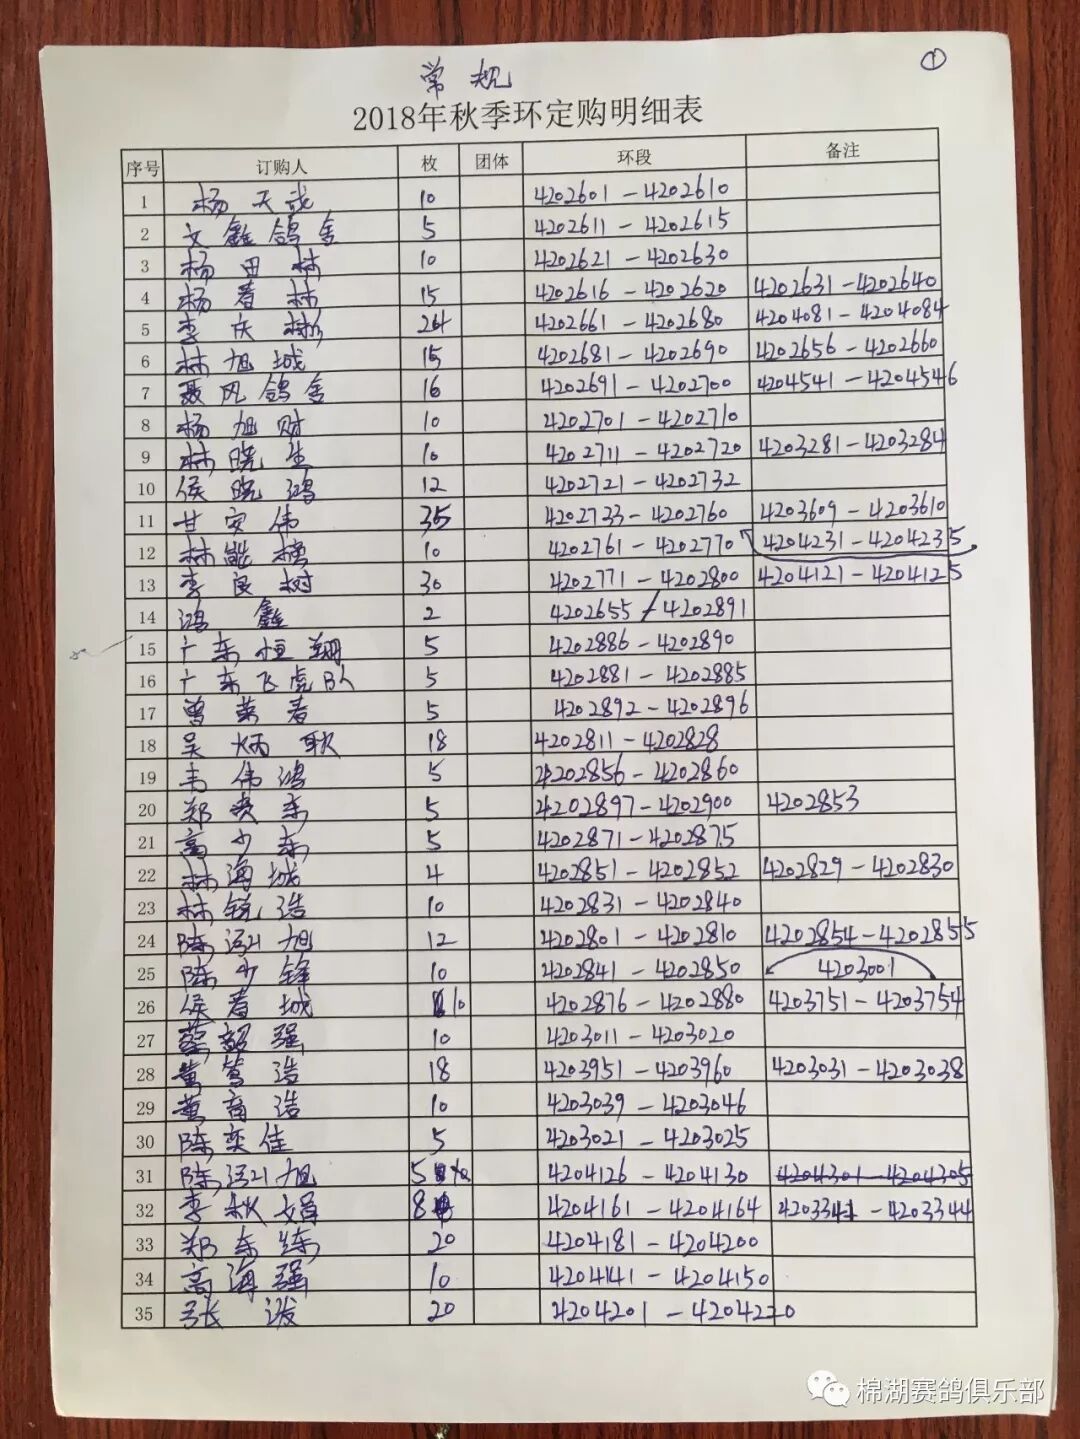 常规
①
2018年秋季环定购明细表
序号 订购人 枚 团体 环段 备注
1 杨天武 10 4202601－4202610
2 文鑫鸽舍 5 4202611－4202615
3 杨田林 10 4202621－4202630
4 杨春林 15 4202616－4202620 4202631－4202640
5 李庆彬 24 4202661－4202680 4204081－4204084
6 林旭城 15 4202681－4202690 4202656－4202660
7 聂风鸽舍 16 4202691－4202700 4204541－4204546
8 杨旭财 10 4202701－4202710
9 林晓生 10 4202711－4202720 4203281－4203284
10 侯晓鸿 12 4202721－4202732
11 甘安伟 35 4202733－4202760 4203609－4203610
12 林能 10 4202761－4202770 4204231－4204235
13 李良树 30 4202771－4202800 4204121－4204125
14 鸿鑫 2 4202655/4202891
15 广东恒翔 5 4202886－4202890
16 广东飞虎队 5 4202881－4202885
17 曾荣春 5 4202892－4202896
18 吴炳耿 18 4202811－4202828
19 韦伟鸿 5 4202856－4202860
20 郑贵东 5 4202897－4202900 4202853
21 高少东 5 4202871－4202875
22 林海城 4 4202851－4202852 4202829－4202830
23 林锐浩 10 4202831－4202840
24 陈旭 12 4202801－4202810 4202854－4202855
25 陈少锋 10 4202841－4202850 4203001
26 侯春城 10 4202876－4202880 4203751－4203754
27 蔡韶强 10 4203011－4203020
28 黄浩 18 4203951－4203960 4203031－4203038
29 黄育浩 10 4203039－4203046
30 陈奕佳 5 4203021－4203025
31 陈旭 5 4204126－4204130 4204301－4204305
32 李秋娟 8 4204161－4204164 4203341－4203344
33 郑东练 20 4204181－4204200
34 高海强 10 4204141－4204150
35 张泼 20 4204201－4204220
棉湖赛鸽俱乐部